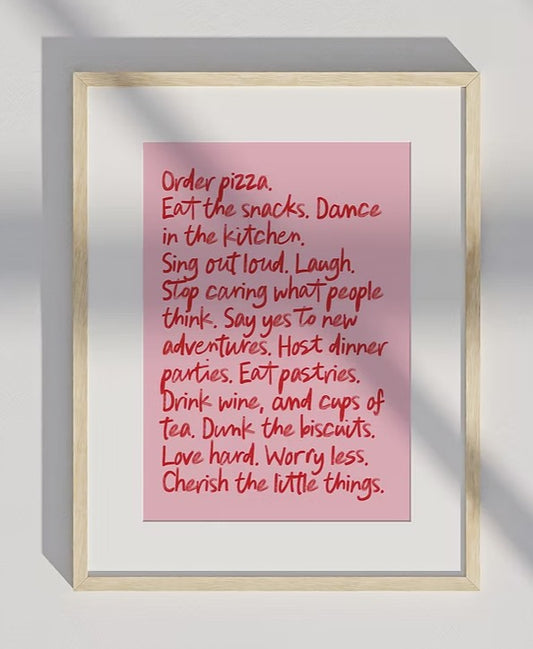 Order pizza.
Eat the snacks. Dance
in the kitchen.
Sing out loud. Laugh.
Stop caring what people
think. Say yes to new
adventures. Host dinner
parties. Eat pastries.
Drink wine, and cups of
tea. Dunk the biscuits.
Love hard. Worry less.
Cherish the little things.